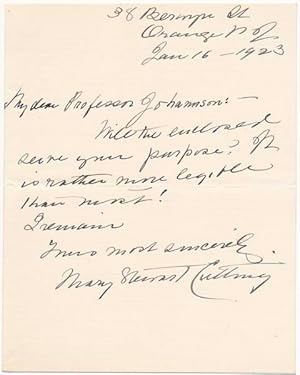 38 Berwyn St
Orange N J
Jan 16 - 1923
My dear Professor Johannson:-
Will the enclosed
serve your purpose? It
is rather more legible
than most!
I remain
Yours most sincerely
Mary Stewart Cutting